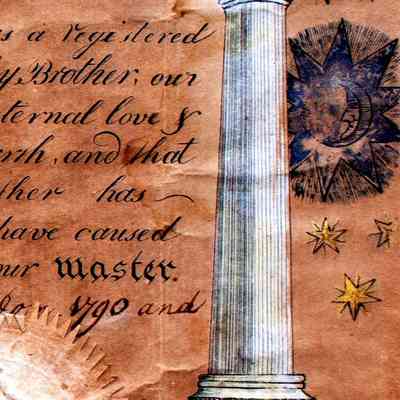 s a registered
y Brother, our
ternal love &
rth, and that
ther has
have caused
our Master.
1790 and